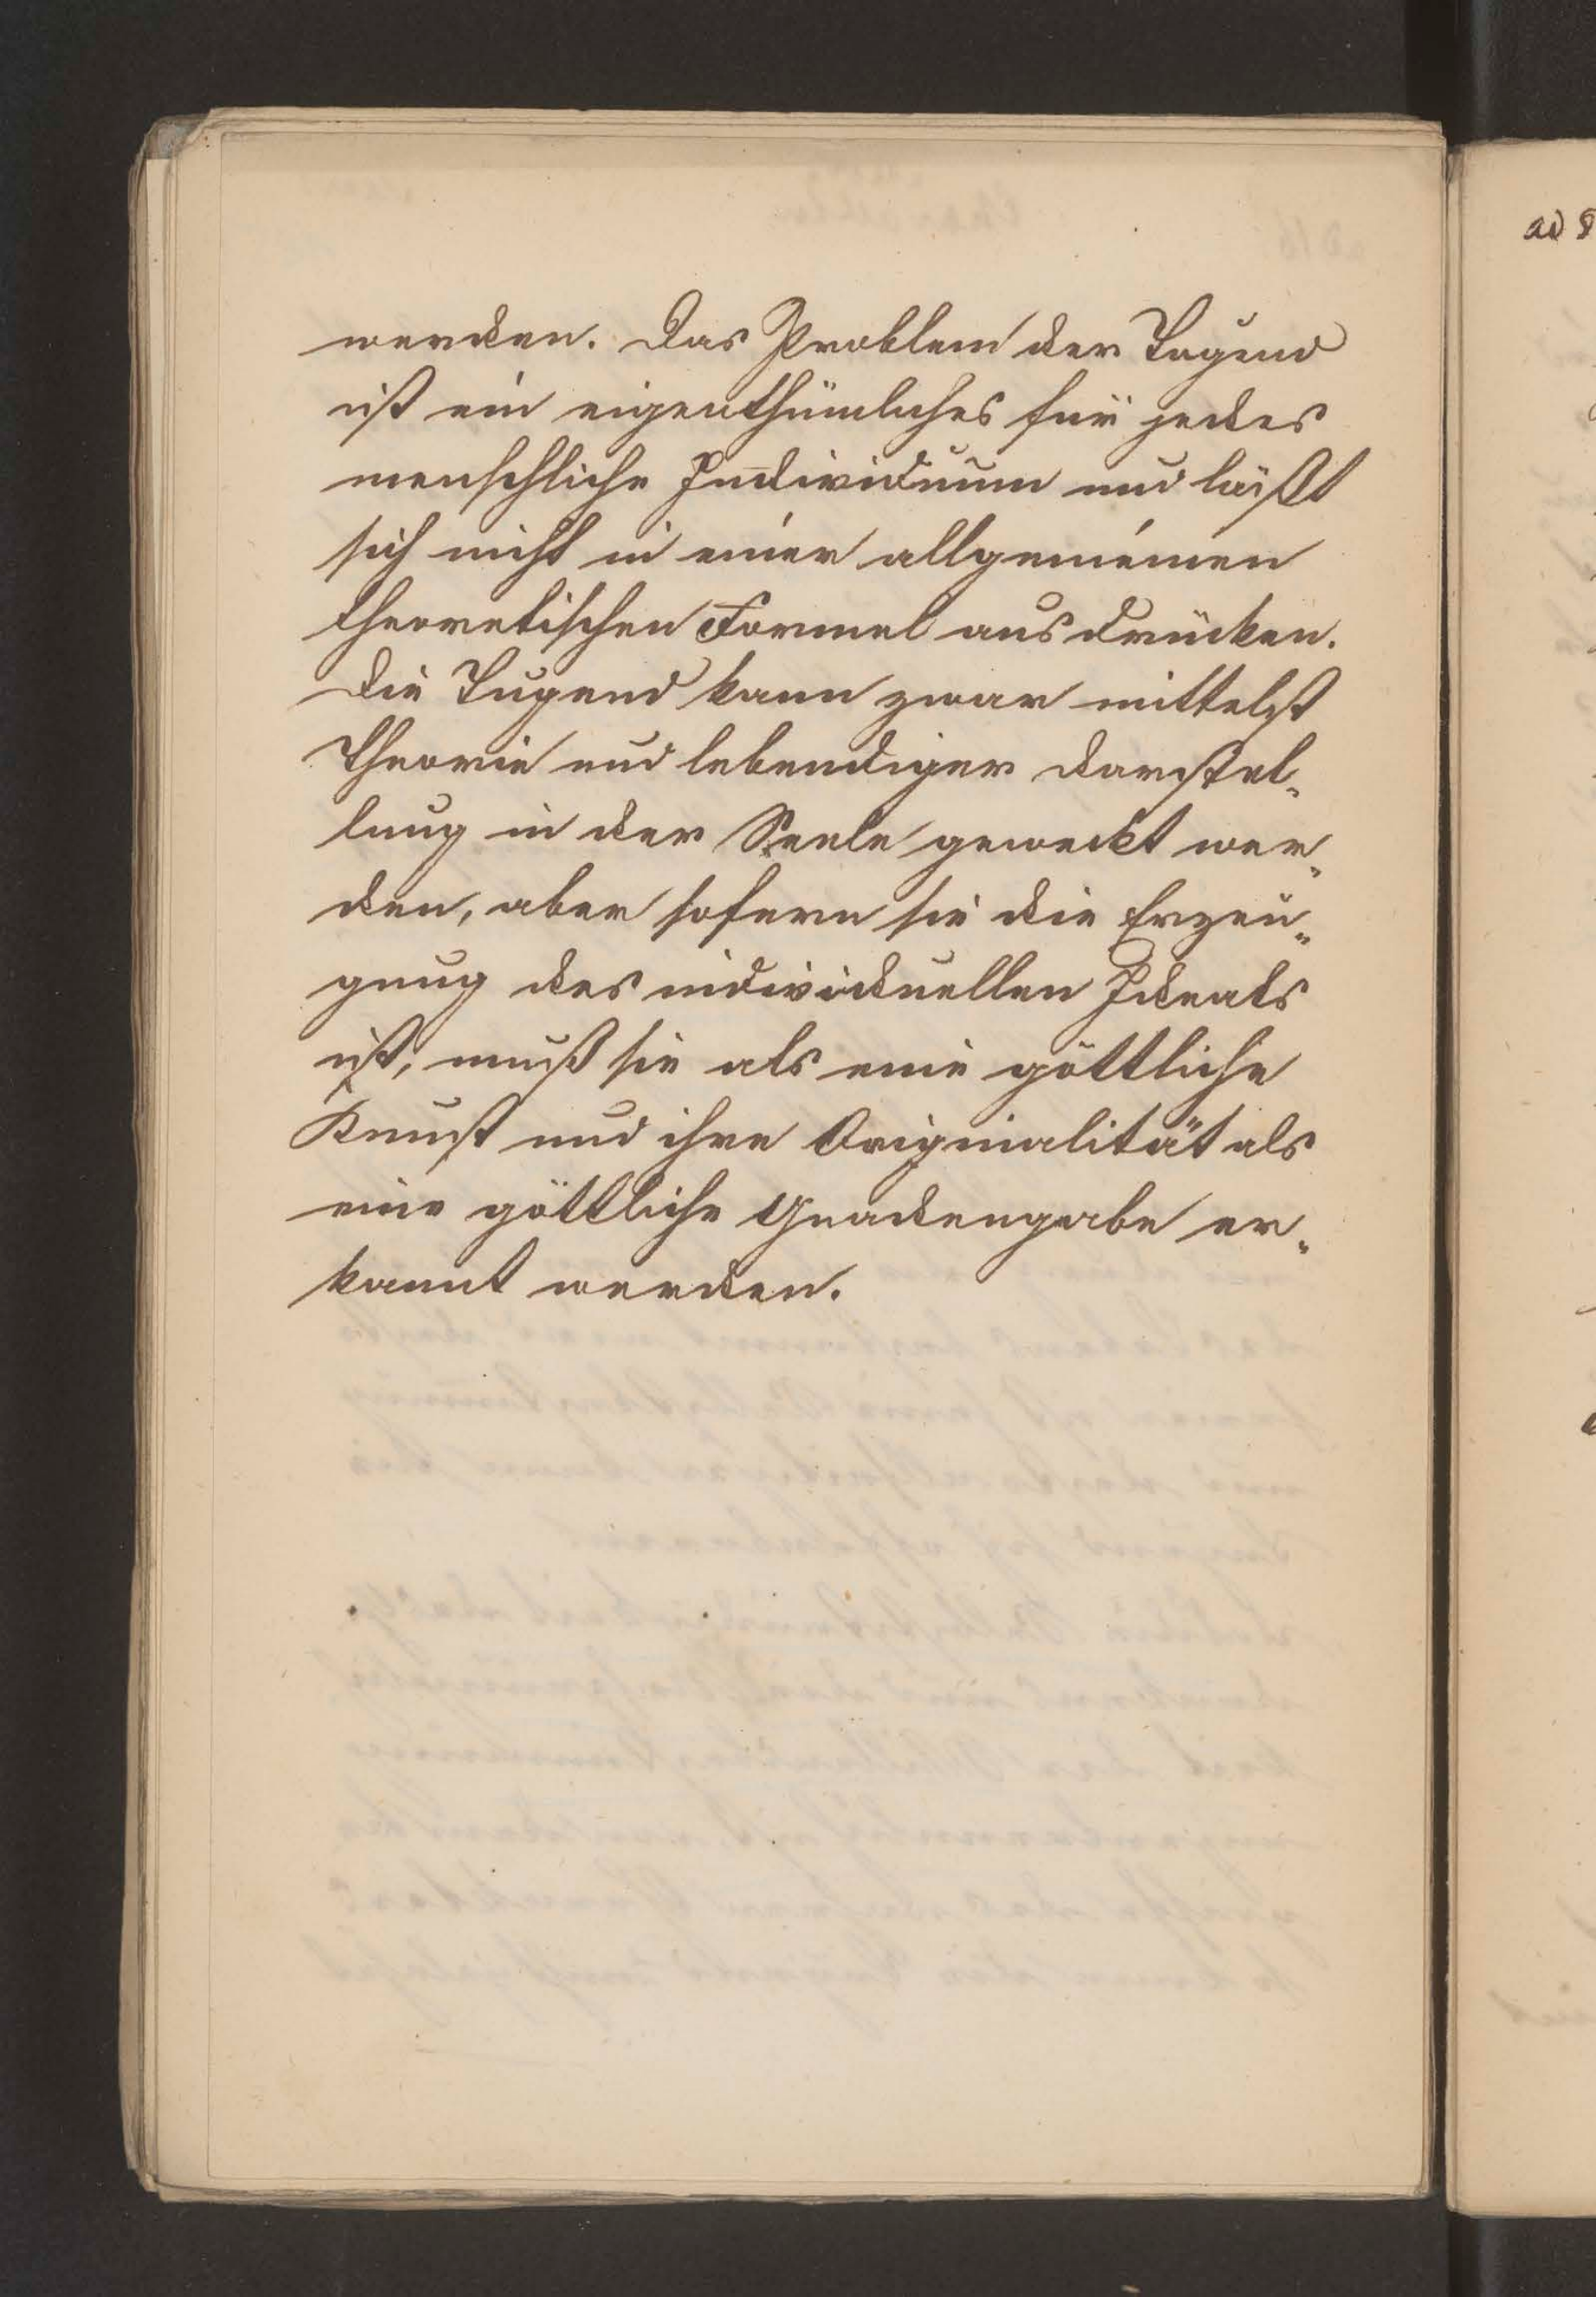 werden. Das Problem der Tugend
ist ein eigenthümliches für jedes
menschliche Individuum und läßt
sich nicht in einer allgemeinen
theoretischen Formel ausdrücken.
Die Tugend kann zwar mittelst
Theorie und lebendiger Darstel„
lung in der Seele geweckt wer„
den, aber sofern sie die Erzeu„
gung des individuellen Ideals
ist, muß sie als eine göttliche
Kunst und ihre Originalität als
eine göttliche Gnadengabe er„
kannt werden.
ad 8